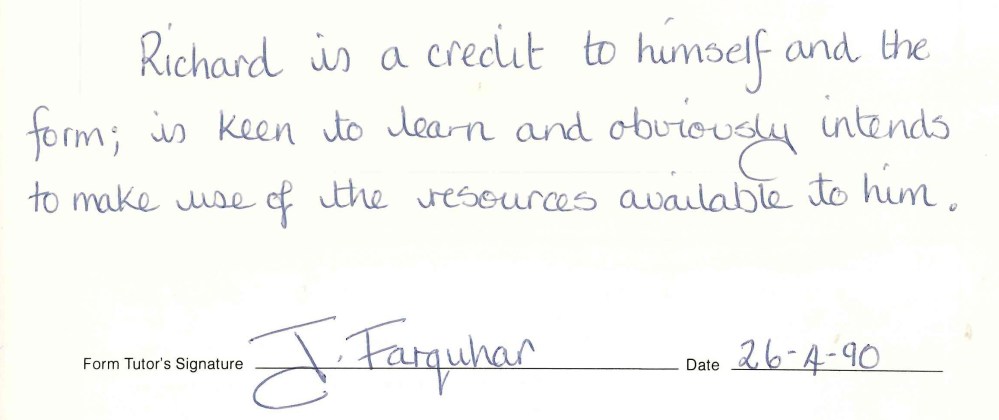 Richard is a credit to himself and the
form; is keen to learn and obviously intends
to make use of the resources available to him.
Form Tutor's Signature J. Farquhar Date 26-4-90